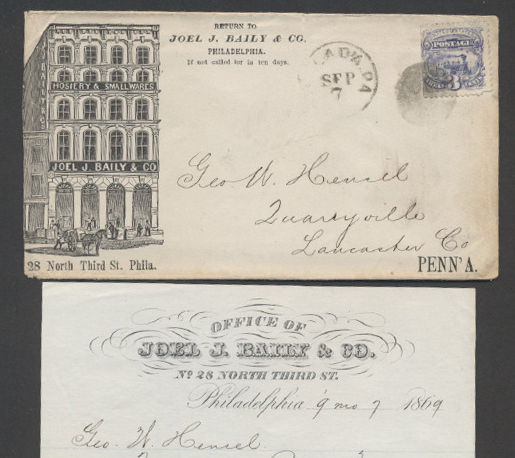 RETURN TO
JOEL J. BAILY & CO.
PHILADELPHIA.
If not called for in ten days.
HOSIERY & SMALLWARES
JOEL J. BAILY & CO
28 North Third St. Phila.
SEP
7
PA
POSTAGE
3
Geo W. Hensel
Quarryville
Lancaster Co
PENN'A.
OFFICE OF
JOEL J. BAILY & CO.
No 28 NORTH THIRD ST.
Philadelphia 9 mo 7 1869
Geo. W. Hensel